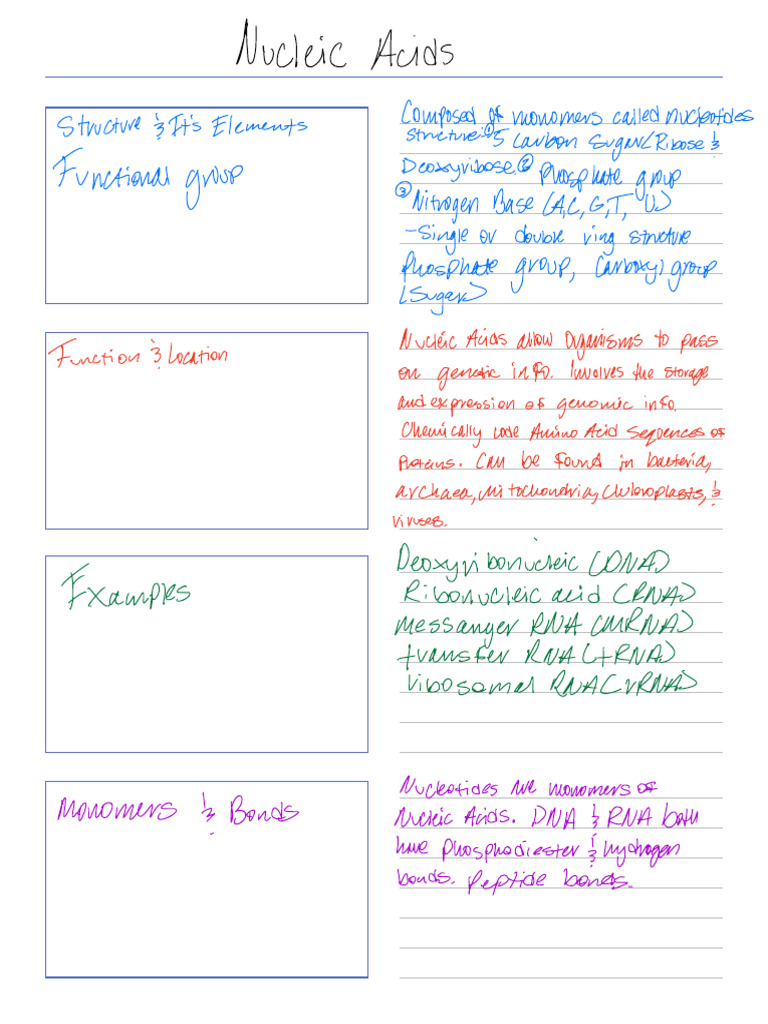 Nucleic Acids
Structure & It's Elements
Functional group
Composed of monomers called nucleotides
Structure: ① 5 Carbon Sugar (Ribose &
Deoxyribose. ② Phosphate group
③ Nitrogen Base (A, C, G, T, U)
-Single or double ring structure
Phosphate group, Carboxyl group
(Sugar)
Function & Location
Nucleic Acids allow Organisms to pass
on genetic info. Involves the storage
and expression of genomic info.
Chemically code Amino Acid Sequences of
Proteins. Can be found in bacteria,
archaea, mitochondria, Chloroplasts, &
viruses.
Examples
Deoxyribonucleic (DNA)
Ribonucleic acid (RNA)
messanger RNA (mRNA)
transfer RNA (tRNA)
ribosomal RNA (rRNA)
Monomers & Bonds
Nucleotides are monomers of
Nucleic Acids. DNA & RNA both
have Phosphodiester & hydrogen
bonds. Peptide bonds.